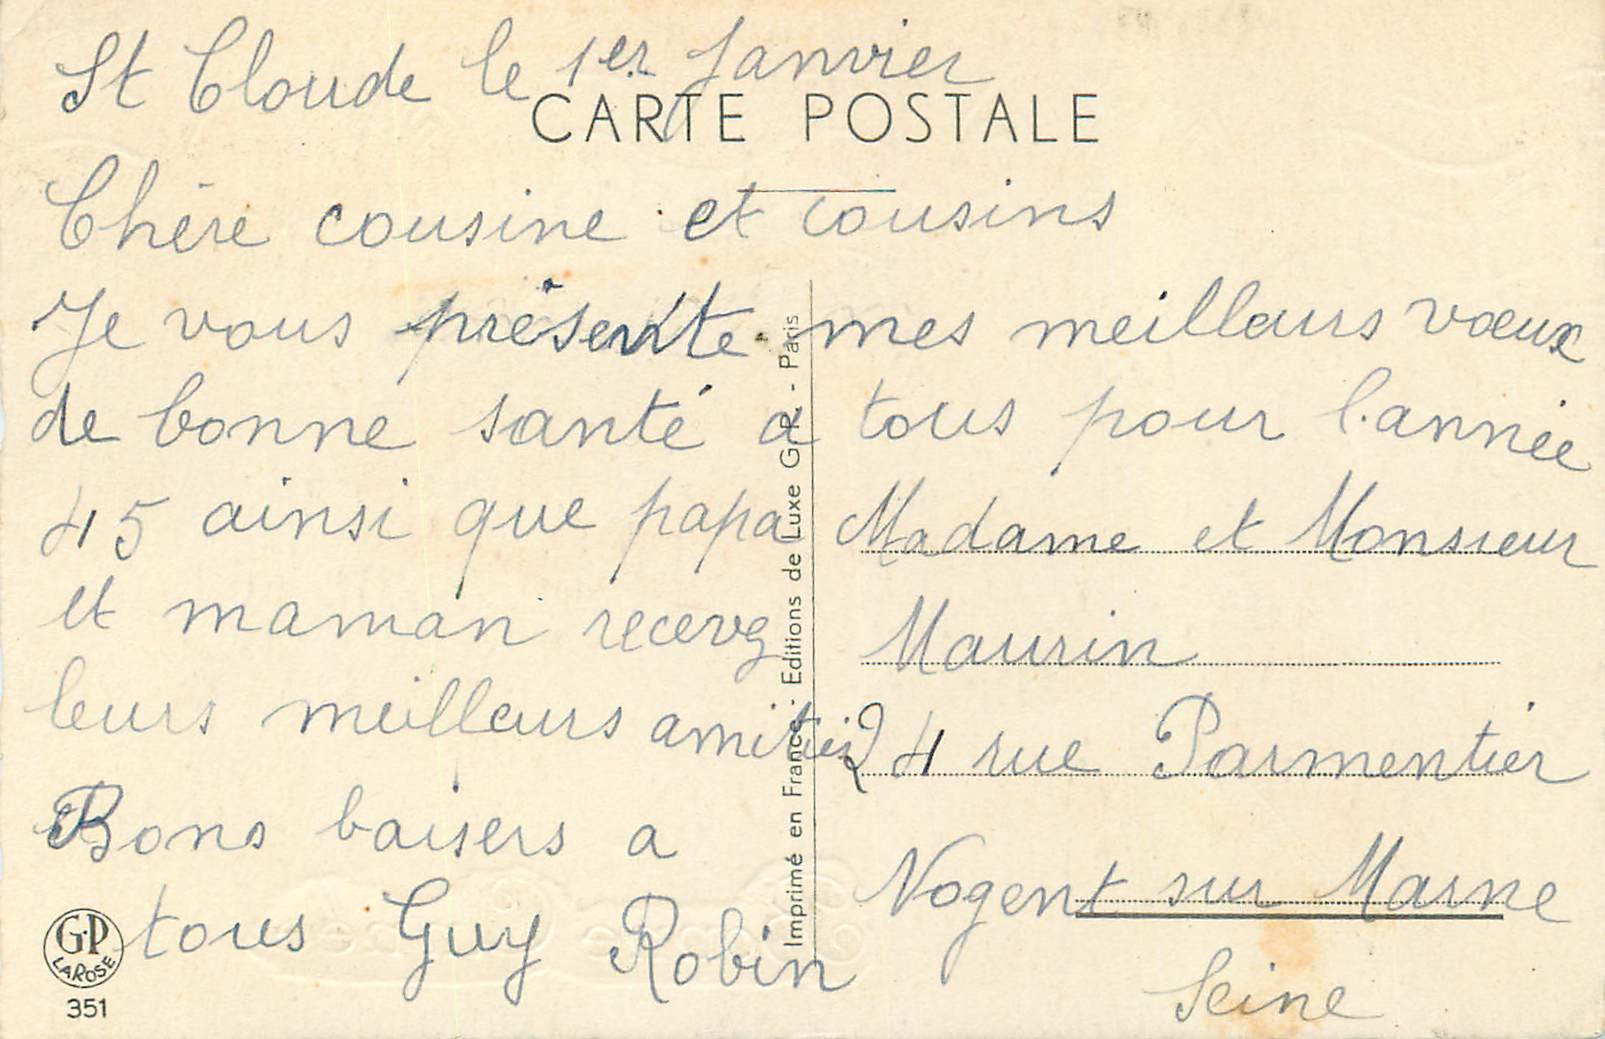 St Cloude le 1er Janvier
CARTE POSTALE
Chère cousine et cousins
Je vous présente mes meilleurs vœux
de bonne santé a tous pour l'année
45 ainsi que papa
et maman recevez
leurs meilleurs amitiés
Bons baisers a
tous Guy Robin
Madame et Monsieur
Maurin
24 rue Parmentier
Nogent sur Marne
Seine
Imprimé en France - Editions de Luxe G.R. - Paris
G.P
LAROSE
351